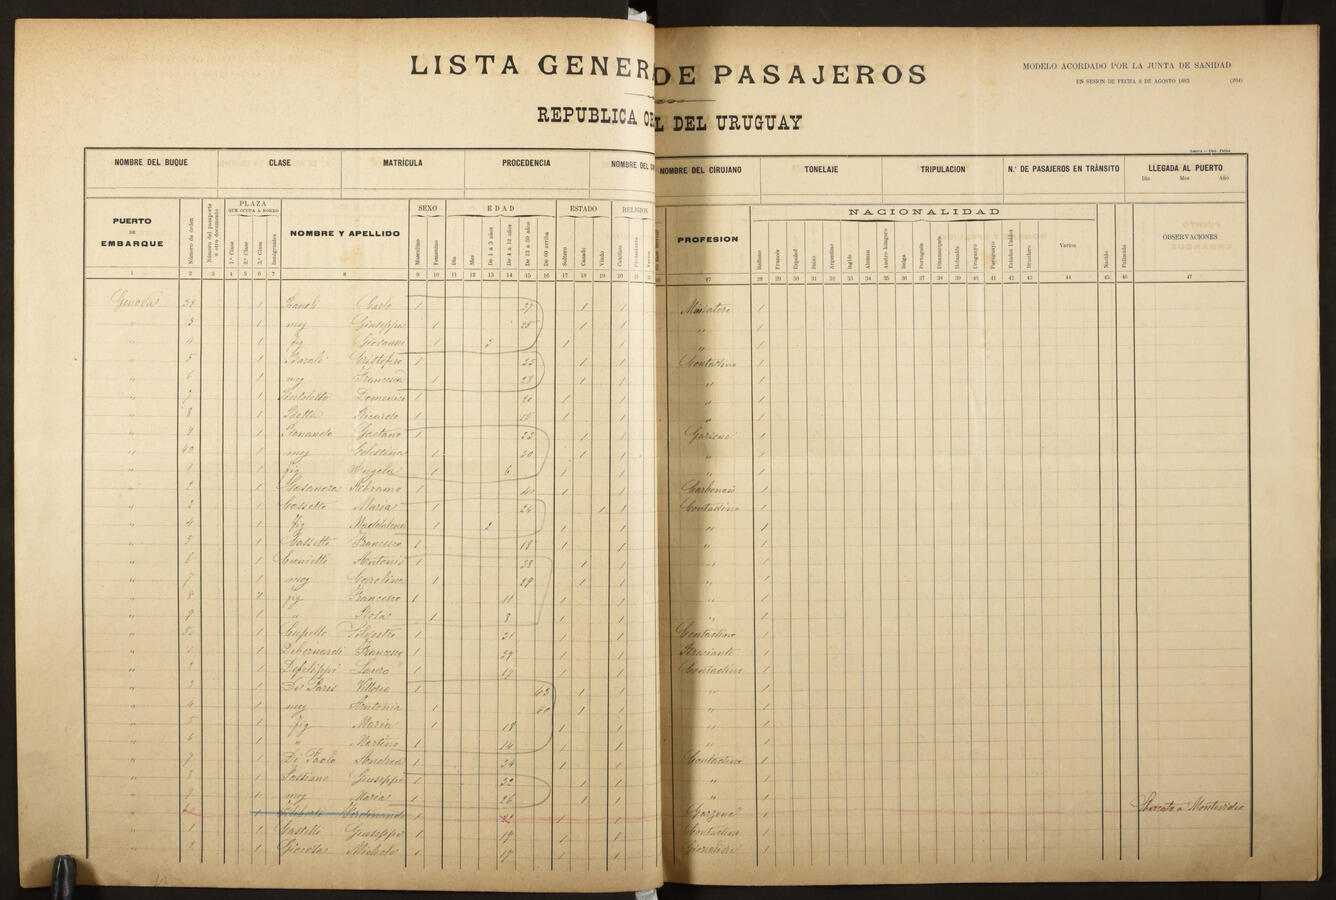 LISTA GENER DE PASAJEROS
REPUBLICA O L DEL URUGUAY
MODELO ACORDADO POR LA JUNTA DE SANIDAD
EN SESION DE FECHA 8 DE AGOSTO 1883 (204)
NOMBRE DEL BUQUE CLASE MATRÍCULA PROCEDENCIA NOMBRE DEL NOMBRE DEL CIRUJANO TONELAJE TRIPULACION N.° DE PASAJEROS EN TRÀNSITO LLEGADA AL PUERTO
Dia Mes Año
PUERTO DE EMBARQUE Número de orden Número del pasaporte ú otro documento PLAZA QUE OCUPA A BORDO 1.ª Clase 2.ª Clase 3.ª Clase Inmigrantes NOMBRE Y APELLIDO SEXO Masculino Femenino EDAD Dia Mes De 1 a 3 años De 4 a 12 años De 13 a 59 años De 60 arriba ESTADO Soltero Casado Viudo RELIGION Católico Protestante Varios
PROFESION NACIONALIDAD Italiano Francés Español Suizo Argentino Inglés Aleman Austro húngaro Belga Portugués Dinamarqués Holandés Uruguayo Paraguayo Estados Unidos Brasilero Varios Nacido Fallecido OBSERVACIONES
1 2 3 4 5 6 7 8 9 10 11 12 13 14 15 16 17 18 19 20 21 27 28 29 30 31 32 33 34 35 36 37 38 39 40 41 42 43 44 45 46 47
Genova Carlo 37 Minatore
" 3 mog Giuseppa 25 "
" 4 fig Giovanni 3 "
" 5 Cristoforo 25 Contadino
" 6 mog Francesca 23 "
" 7 Domenico 20 "
" 8 Betti Ricardo 15 "
" 9 Gaetano 23 Garzone
" 40 mog Celestina 20 "
" 1 fig Angela 6 "
" 2 Casanova Abramo 40 Carbonaio
" 3 Cassetto Maria 24 Contadino
" 4 fig Maddalena 2 "
" 5 Cassetto Francesco 18 "
" 6 Antonio 38 "
" 7 mog Carolina 29 "
" 8 fig Francesco 11 "
" 9 " Rosa 8 "
" 50 Cupello Silvestro 21 Contadino
" 1 Debernardi Francesco 29 Bracciante
" 2 Defilippi Laura 17 Contadino
" 3 De Paris Vittorio 63 "
" 4 mog Antonia 60 "
" 5 fig Maria 18 "
" 6 " Martino 14 "
" 7 Di Paolo Andrea 24 Contadino
" 8 Giuseppe 32 "
" 9 mog Maria 26 "
" 60 Ferdinando Garzone Sbarcato a Montevideo
" 1 Castelli Giuseppe 17 Contadino
" 2 Giocosa Michele 17 Giornaliere